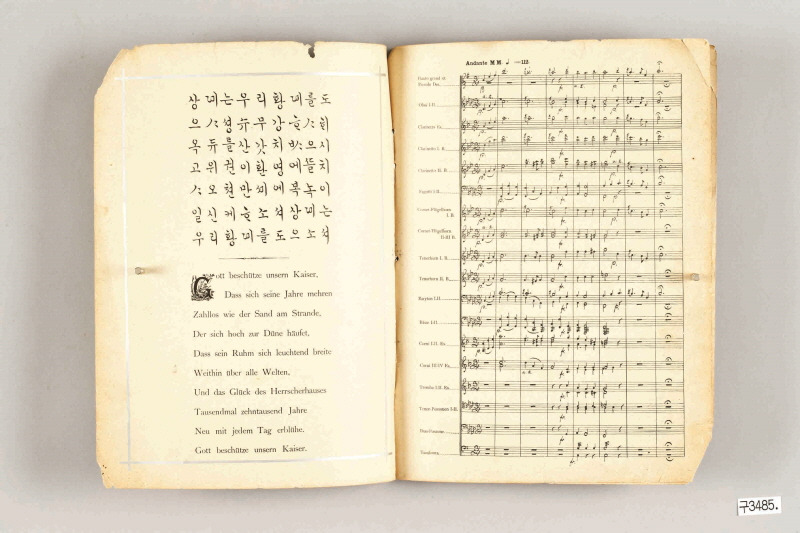 상뎨는우리황뎨를도
으ᄉᆞ셩슈무강ᄒᆞᄉᆞᄒᆡ
옥듀를산갓치ᄡᆞ으시
고위권이환영에ᄯᅳᆯ치
ᄉᆞ오쳔만셰에복녹이
일신케ᄒᆞ소셔상뎨는
우리황뎨를도으소셔
Gott beschütze unsern Kaiser,
Dass sich seine Jahre mehren
Zahllos wie der Sand am Strande,
Der sich hoch zur Düne häufet,
Dass sein Ruhm sich leuchtend breite
Weithin über alle Welten,
Und das Glück des Herrscherhauses
Tausendmal zehntausend Jahre
Neu mit jedem Tag erblühe.
Gott beschütze unsern Kaiser.
Andante M.M. ♩ =112.
Oboi I.II.
Clarinetto Es.
Clarinetto I. B.
Clarinetti II. B.
Fagotti I.II.
Cornet-Flügelhorn
I. B.
Cornet-Flügelhorn
II.III B.
Tenorhorn I. B.
Tenorhorn II. B.
Baryton I.II.
Bassi I.II.
Corni I.II. Es.
Corni III.IV Es.
Trombe I.II. Es.
Tenor-Posaunen I-II.
Bass-Posaune
Tamburo
구3485.